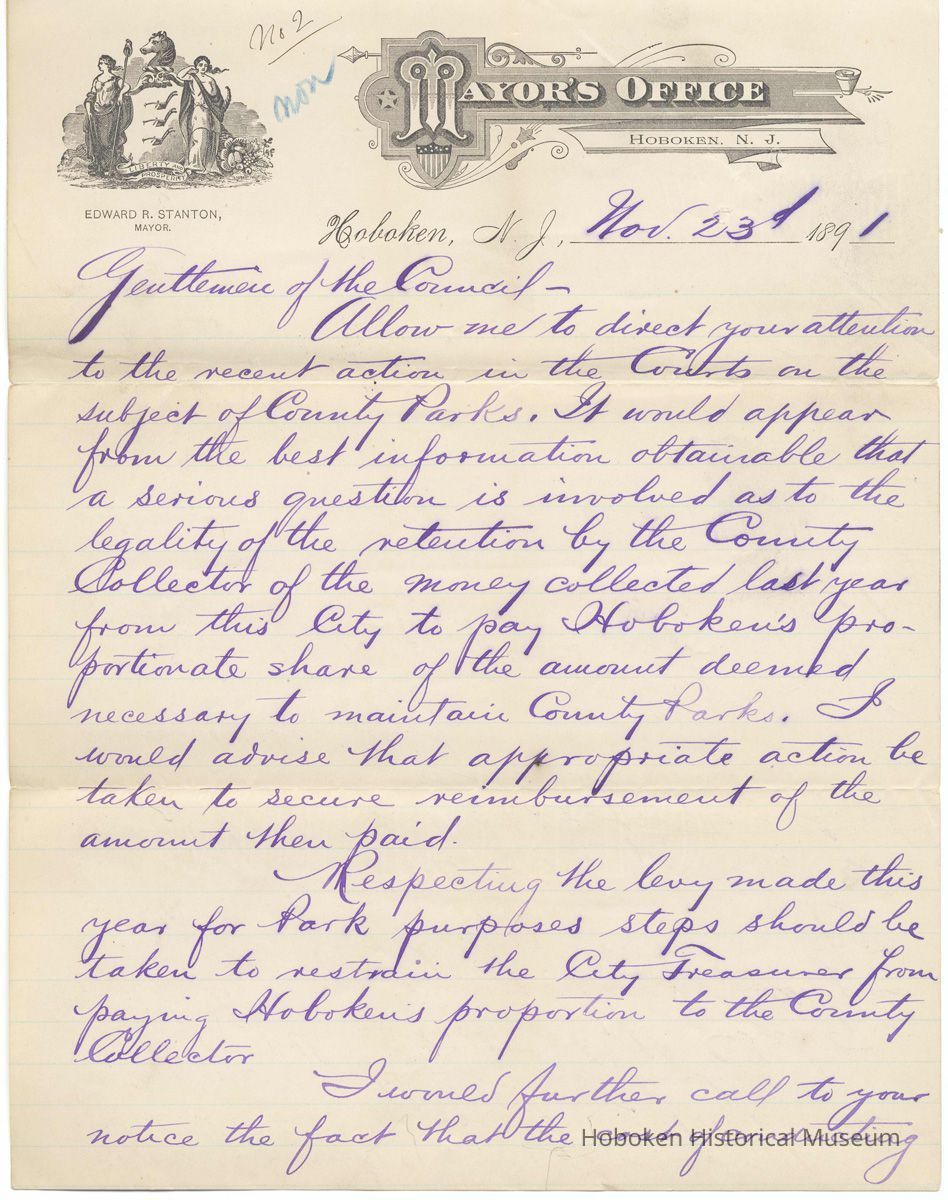 No 2
non
MAYOR'S OFFICE
HOBOKEN. N. J.
LIBERTY AND
PROSPERITY
EDWARD R. STANTON,
MAYOR.
Hoboken, N. J., Nov. 23d 1891
Gentlemen of the Council -
Allow me to direct your attention
to the recent action in the Courts on the
subject of County Parks. It would appear
from the best information obtainable that
a serious question is involved as to the
legality of the retention by the County
Collector of the money collected last year
from this City to pay Hoboken's pro-
portionate share of the amount deemed
necessary to maintain County Parks. I
would advise that appropriate action be
taken to secure reimbursement of the
amount then paid.
Respecting the levy made this
year for Park purposes steps should be
taken to restrain the City Treasurer from
paying Hoboken's proportion to the County
Collector
I would further call to your
notice the fact that the
Hoboken Historical Museum